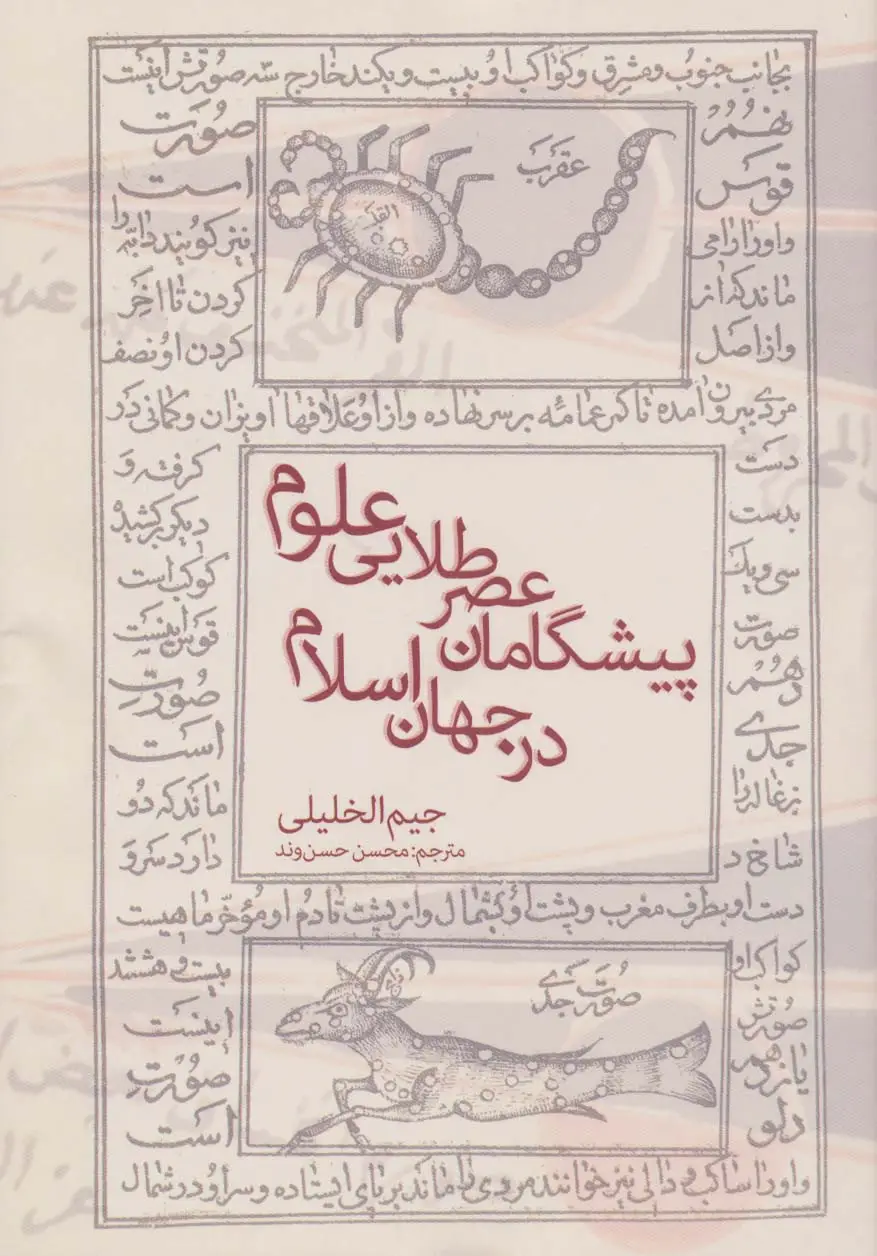 بجانب جنوب و مشرق و کواکب او بیست و یکند خارج سه صورتش اینست
نهم صورت
قوس است
و او را رامی نیز کویند دابه را
ماند که از کردن تا اخر
و از اصل کردن او نصف
عقرب
القلب
مردی بیرون امده تا کمر عمامه بر سر نهاده و از او علاقها اویزان و کمانی در
دست کرفته و
بدست دیکر کشیده
سی و یک کوکب است
صورت قوس اینست
دهم صورت
جدی است
بزغاله را ماند که دو
شاخ دارد سر و
پیشگامان عصر طلایی علوم
در جهان اسلام
جیم الخلیلی
مترجم: محسن حسن‌وند
دست او بطرف مغرب و پشت او بشمال و از پشت تا دم او مؤخر ماهیست
کواکب او بیست و هشتند
صورتش اینست
یازدهم صورت
دلو است
صورت جدی
و او را ساکب و دالی نیز خوانند مردی را ماند بر پای ایستاده و سر او در شمال